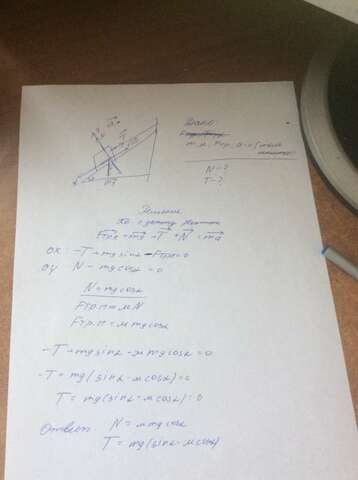 Дано:
N = ?
T = ?
Решение
Fтр.п + mg + T + N = ma
OX: -T + mg sinα - Fтрп = 0
OY: N - mg cosα = 0
N = mg cosα
Fтр.п = μN
Fтр.п = μ mg cosα
-T + mg sinα - μ mg cosα = 0
-T + mg (sinα - μ cosα) = 0
T = mg (sinα - μ cosα) : 0
Ответ: N = μ mg cosα
T = mg (sinα - μ cosα)